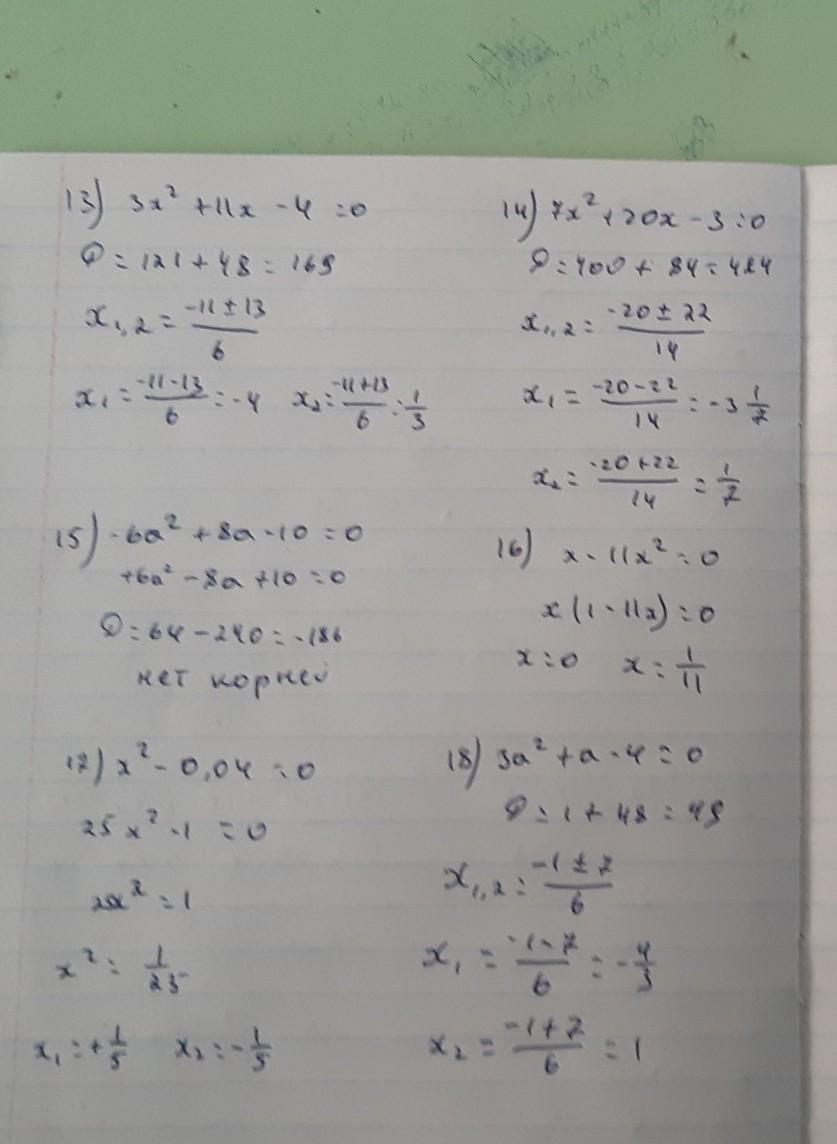 13) 3x² + 11x - 4 = 0
D = 121 + 48 = 169
x₁,₂ = (-11 ± 13)/6
x₁ = (-11-13)/6 = -4 x₂ = (-11+13)/6 = 1/3
14) 7x² + 20x - 3 = 0
D = 400 + 84 = 484
x₁,₂ = (-20 ± 22)/14
x₁ = (-20-22)/14 = -3 1/7
x₂ = (-20+22)/14 = 1/7
15) -6a² + 8a - 10 = 0
+6a² - 8a + 10 = 0
D = 64 - 240 = -186
нет корней
16) x - 11x² = 0
x(1 - 11x) = 0
x = 0 x = 1/11
17) x² - 0,04 = 0
25x² - 1 = 0
25x² = 1
x² = 1/25
x₁ = +1/5 x₂ = -1/5
18) 3a² + a - 4 = 0
D = 1 + 48 = 49
x₁,₂ = (-1 ± 7)/6
x₁ = (-1-7)/6 = -4/3
x₂ = (-1+7)/6 = 1